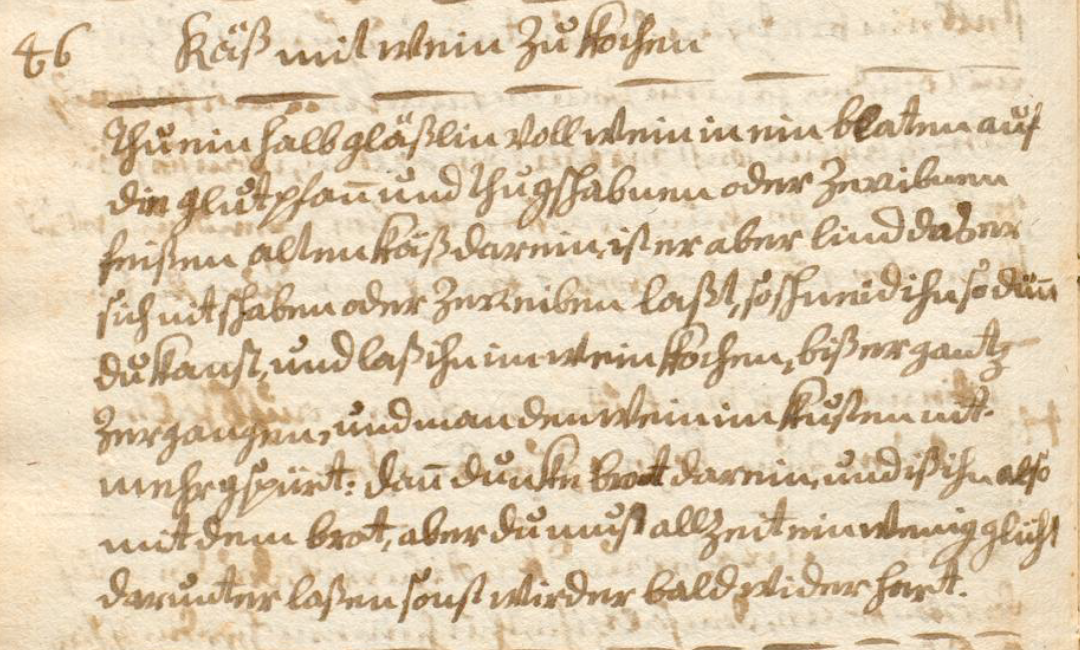 46 Käß mit wein Zu kochen
Thu ein halb gläßlin voll wein in ein blaten auf
die glutpfañ und thu gschabnen oder Zeribnen
feißen alten käß darein, ist er aber lind das er
sich nit schaben oder Zerreiben laßt, so schneid ihn so düñ
du kanst, und laß ihn im wein kochen, biß er gantz
Zergangen, und man den wein im kusten nit
mehr gspürt: dañ dunke brot darein, und iß ihn also
mit dem brot, aber du must allzeit ein wenig glüht
darunter laßen sonst wird er bald wider hart.